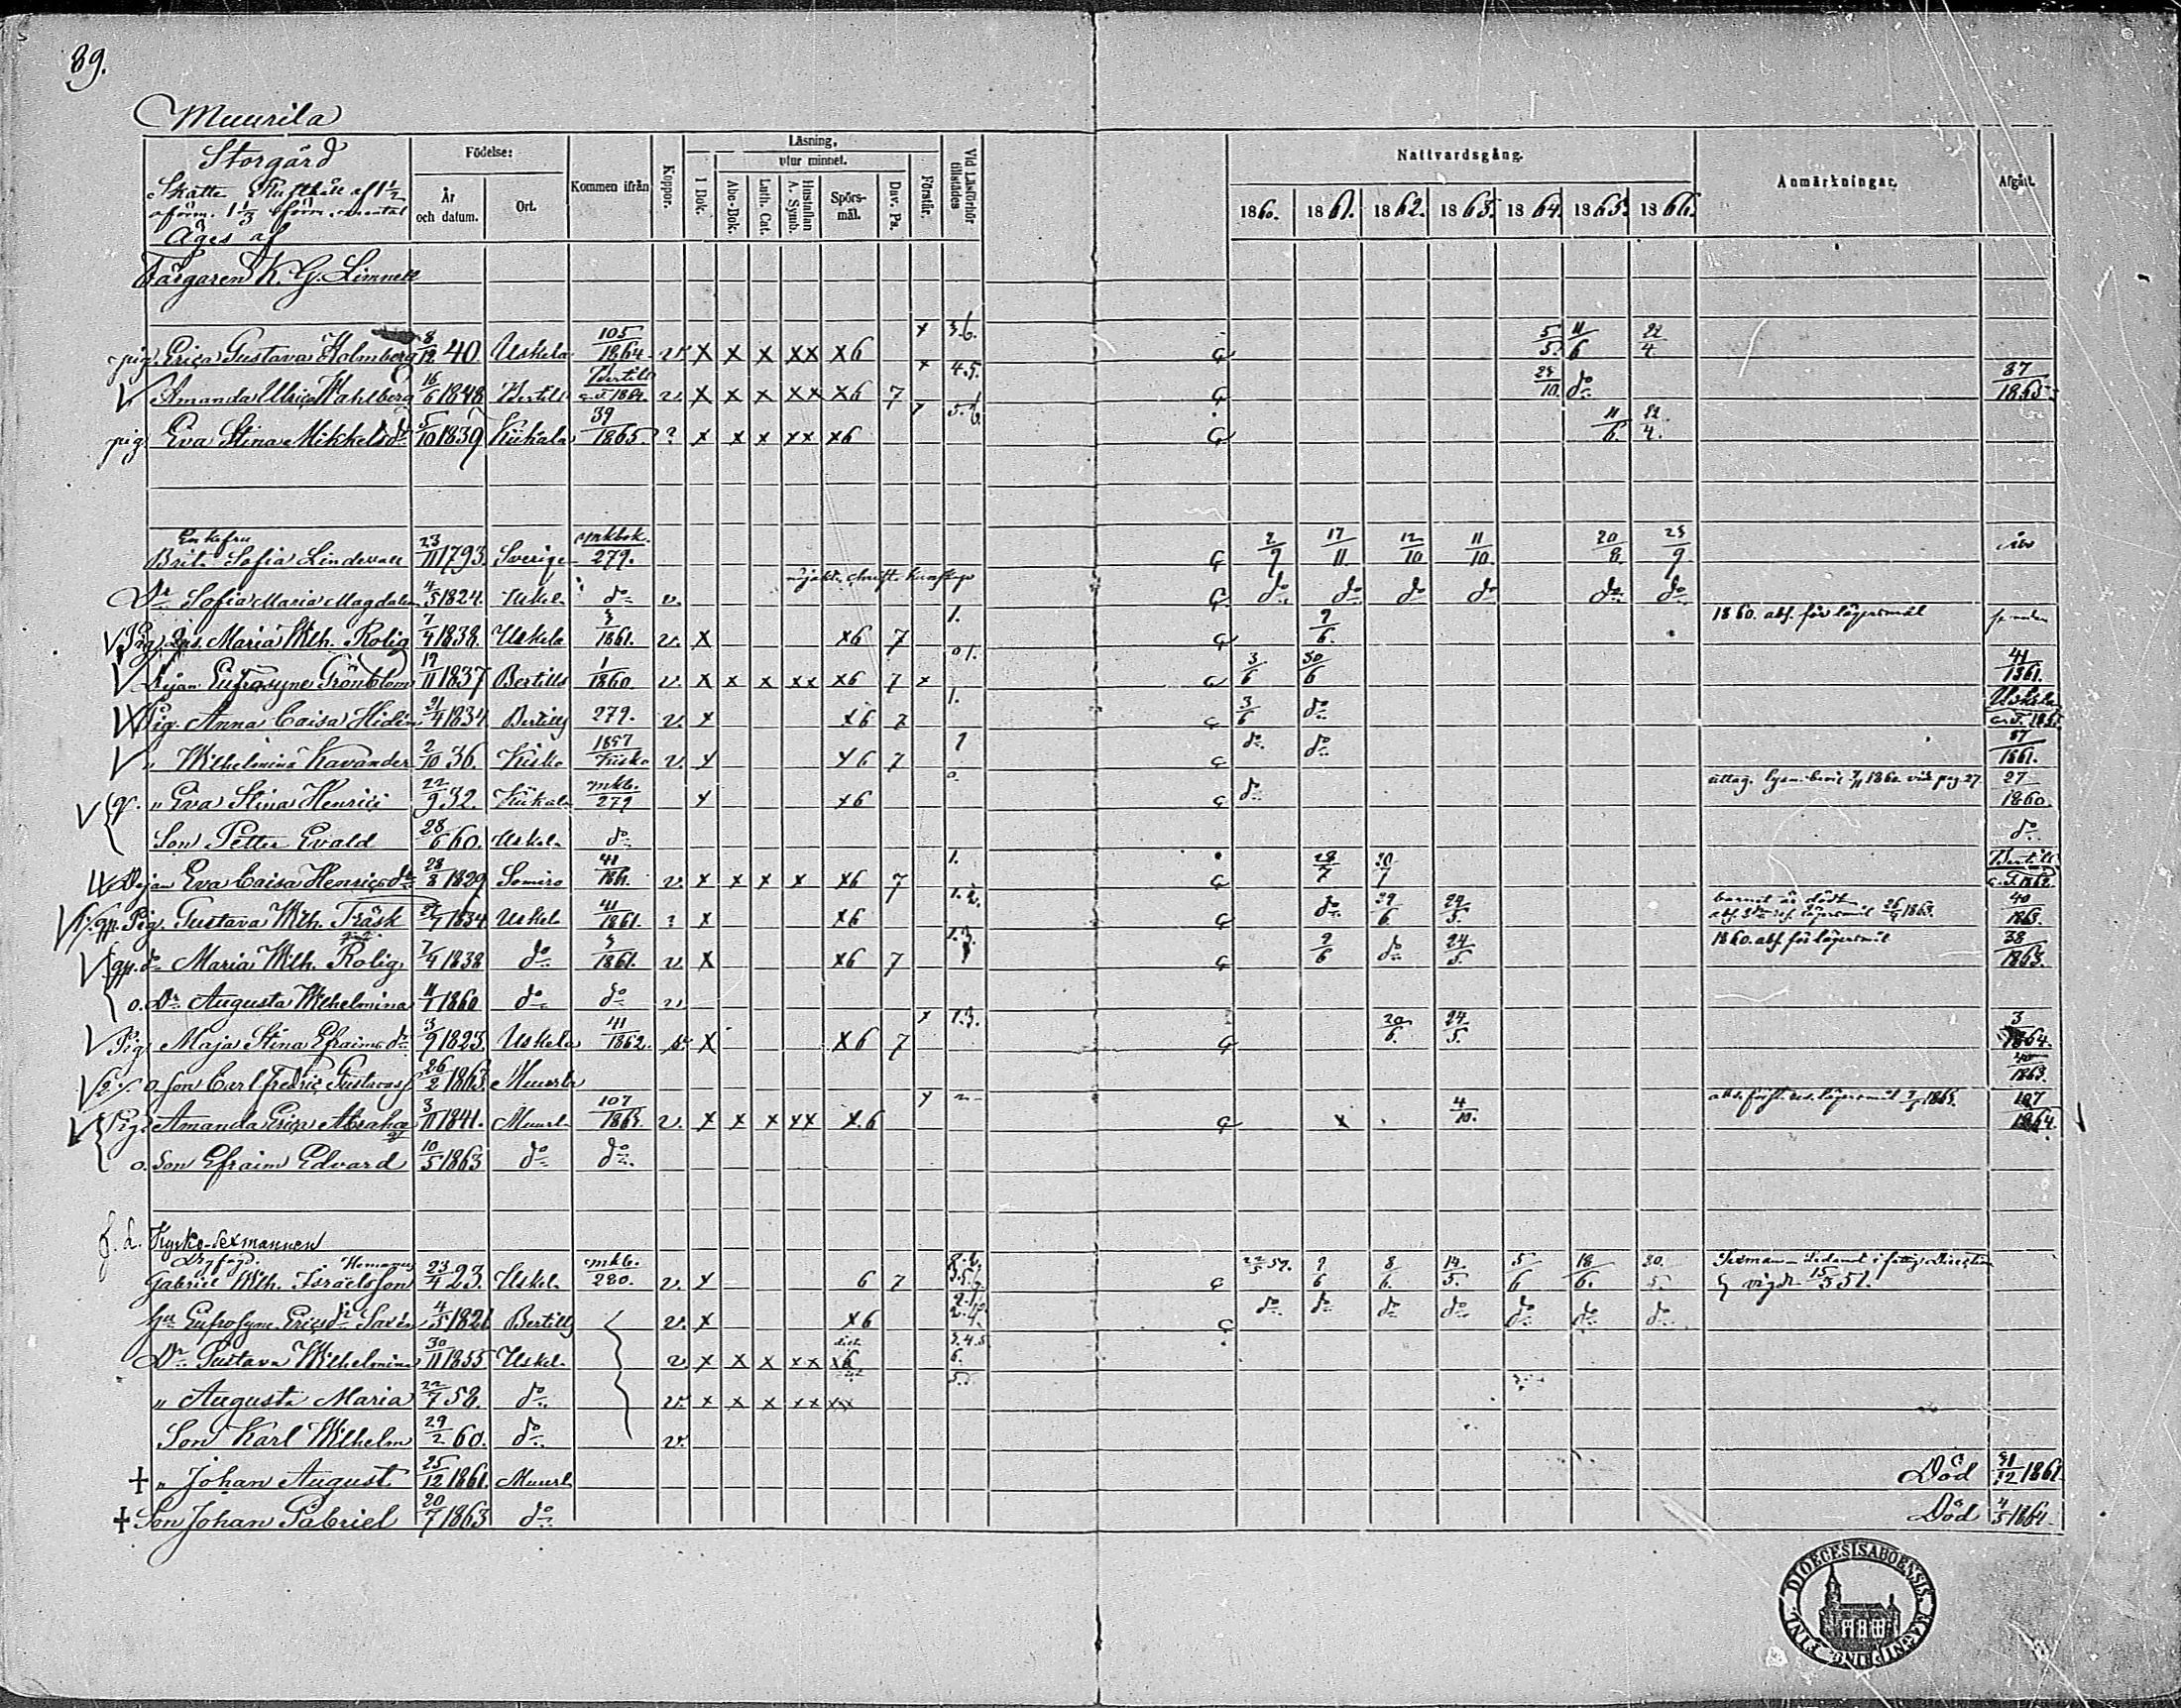 89.
Muurila
Storgård
Skatte Rusthåll af 1 1/2
1 1/3 mantal
Äges af
Färgaren K. G. Limnell
Födelse:
År och datum.
Ort.
Kommen ifrån
Koppor.
Läsning,
I Bok.
utur minnet.
Abc-Bok.
Luth. Cat.
Hustaflan A. Symb.
Spörs-mål.
Dav. Ps.
Förstår.
Vid Läsförhör tillstädes
Nattvardsgång.
1860. 1861. 1862. 1863. 1864. 1865. 1866.
Anmärkningar.
Afgått.
pig. Erica Gustava Holmberg 8/12 40. Uskela 105/1864. v. x x x xx x6 x 3.6. 5/5. 11/6 22/4.
Amanda Ulrica Wahlberg 16/6 1848 Bertills Bertills 1864. v. x x x xx x6 7 x 4.5. 23/10. do 87/1865.
pig. Eva Stina Mikkelsdr 5/10 1839 Kiikala 39/1865 ? x x x xx x6 x 5.6. 11/6. 22/4.
Enkefru
Brita Sofia Lindewall 23/11 1793. Sverige mkbok. 279. 2/9 17/11. 12/10 11/10. 20/8. 23/9.
Dr Sofia Maria Magdalen 4/5 1824. Uskel. do v. do do do do do do
Pig. Maria Wilh. Rolig 7/4 1838. Uskela 3/1861. v. x x6 7 1. 9/6. 1860. abs. för lägersmål
Dejan Eufrosyne Grönblom 19/11 1837 Bertills 1/1860 v. x x x xx x6 7 x 3/6 30/6 41/1861.
Pig. Anna Caisa Hidén 21/4 1834. Bertills 279. v. x x6 7 1. 3/6 do Uskela
" Wilhelmina Kavander 2/10 36. Kisko 1857 Kisko v. x x6 7 1 do do 87/1861.
" Eva Stina Henrici 22/9 32. Kiikala mkb. 279 x x6 do uttag. lysn. bevis 1860. vid pag 27 27/1860.
Son Petter Evald 28/6 60. Uskel. do do
Dejan Eva Caisa Henricsdr 28/8 1829 Somero 41/1861. v. x x x x x6 7 1. 28/7 20/7 Bertills 1862.
Pig. Gustava Wilh. Träsk 1834. Uskel. 41/1861. ? x x6 1.2. do 29/6. 24/5. barnet är dödt 40/1863.
do Maria Wilh. Rolig 7/4 1838 do 3/1861. v. x x6 7 1.3. 9/6 do 24/5. 1860. abs. för lägersmål 38/1863.
o. Dr Augusta Wilhelmina 11/1 1860 do do v
Pig. Maja Stina Efraimsdr 3/9 1823. Uskela 41/1862. x x6 7 x 1.3. 20/6. 24/5. 3/1864.
o. Son Carl Fredric Gustavas 26/2 1863. Muurla 40/1863.
Pig. Amanda Erica Abraha 3/11 1841. Muurl. 107/1863. v. x x x xx x.6 x 4/10. 107/1864.
o. Son Efraim Edvard 10/5 1863 do do
f. d. Kyrko-Sexmannen
Gabriel Wilh. Israelsson 23/4 23. Uskel. mkb. 280. v. x 6 7 9/6 8/6. 14/5. 5/6 18/6. 20/5. Sexman
Hu Eufrosyne Ericsdr Saxén 4/5 1821 Bertills v. x x6 do do do do do do do
Dr Gustava Wilhelmina 30/11 1855 Uskel. v x x x xx x6 3.4.5 6.
" Augusta Maria 22/7 58. do v. x x x xx xx 5.
Son Karl Wilhelm 29/2 60. do v.
+ " Johan August 25/12 1861. Muurl. Död 31/12 1861
+ Son Johan Gabriel 20/7 1863 do Död 4/5 1864.
DIOECESIS ABOENSIS MAGNI PRINC. FINL.